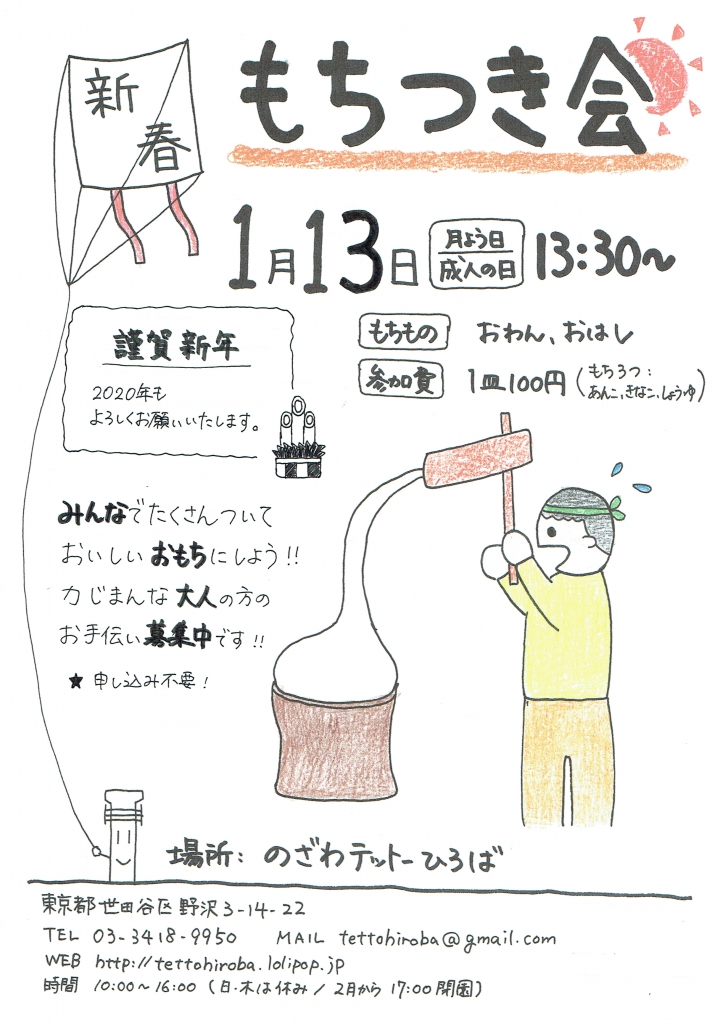 新春
もちつき会
1月13日
月よう日
成人の日
13:30〜
もちもの おわん、おはし
参加費 1皿100円(もち3つ:あんこ、きなこ、しょうゆ)
謹賀新年
2020年も
よろしくお願いいたします。
みんなでたくさんついて
おいしいおもちにしよう!!
力じまんな大人の方の
お手伝い募集中です!!
★申し込み不要!
場所: のざわテットーひろば
東京都世田谷区野沢3-14-22
TEL 03-3418-9950 MAIL tettohiroba@gmail.com
WEB http://tettohiroba.lolipop.jp
時間 10:00〜16:00 (日・木は休み/2月から17:00閉園)